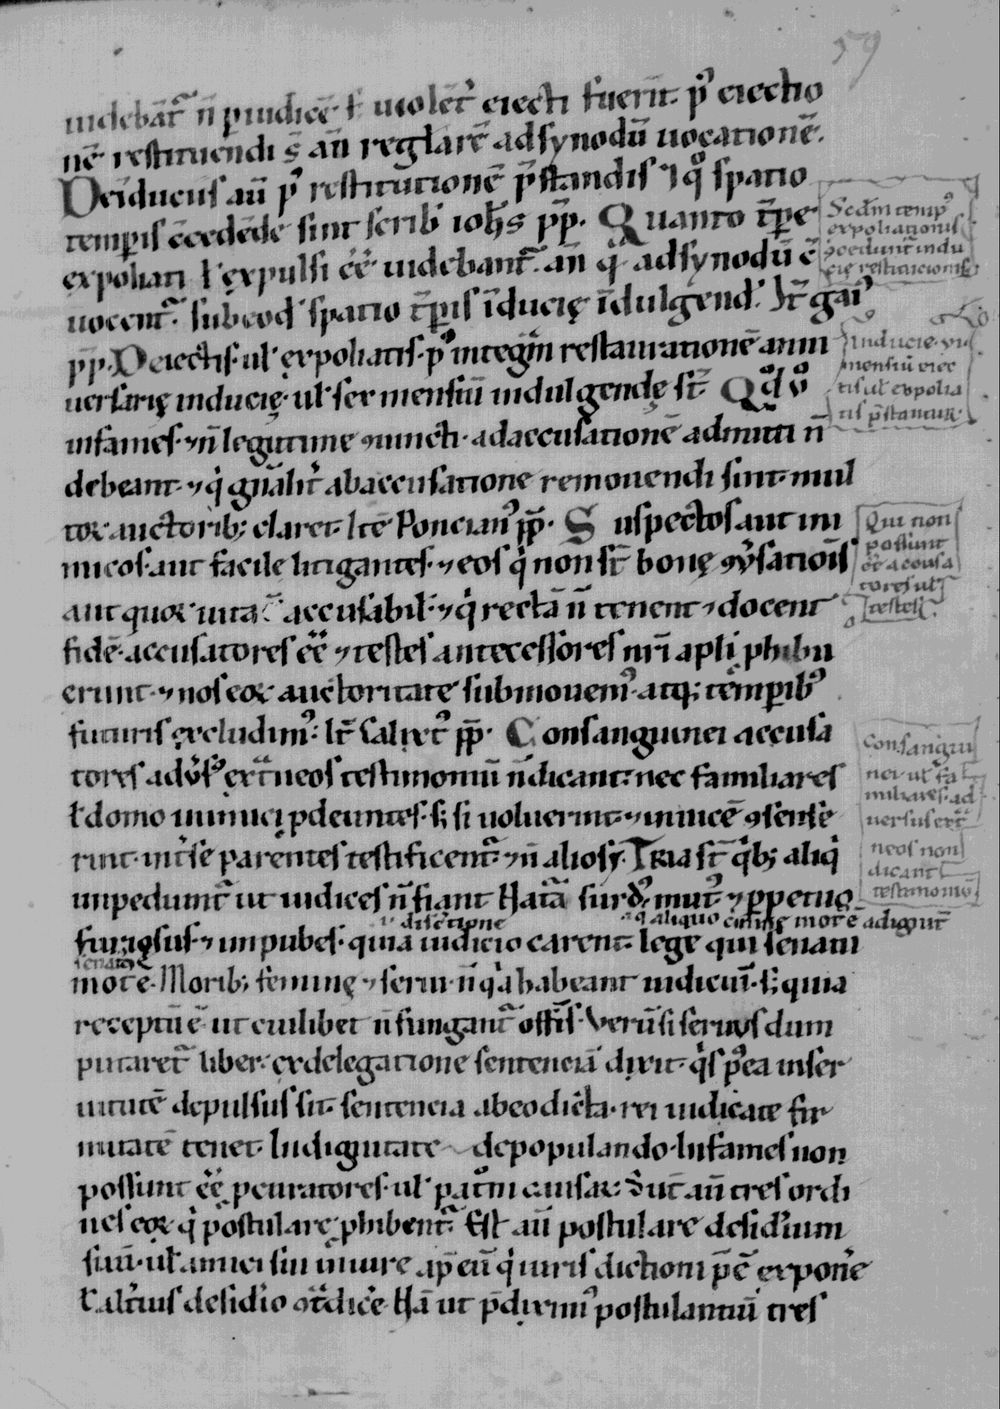 59
uidebāt̃ n̄ p iudicē ł uiolēt̾ eiecti fuerīt. p᷒ eiectio
nē restituendi s̄ aū regłarē adsynodū uocationē.
De iduciis aū p᷒ restitutionē p̄standis ⁊ q̊ spatio
temp̱is c̄cedēde sint scrib᷒ ioh̄s pp̄. Quanto tp̱̄e
expoliati ł expulsi ēē uidebant̃. an̄ q̃ adsynodū c̄
uocent̃. sub eod᷒ spatio tp̱̄is īducię īdulgend᷒. It̃ gai᷒
pp̄. De eiectis uł expoliatis. p᷒ integrā restaurationē anni
uersarię inducię uł sex mensiū indulgendę st̄ Qd̊ ů
infames ⁊ n̄ legitime ꝯiuncti adaccusationē admitti n̄
debeant ⁊ q̇ gn̄alit̾ abaccusatione remouendi sint mul
toꝝ auctorib; claret. Itē Poncian᷒ pp̄. Suspectos aut ini
micos aut facile litigantes ⁊ eos q̇ non st̄ bonę ꝯu̾sationis̄
aut quoꝝ uita ē accusabil᷒ ⁊ q̇ rectā n̄ tenent ⁊ docent
fidē. accusatores ēē ⁊ testes antecessores nr̄i apłi phibu
erunt ⁊ nos eoꝝ auctoritate submouem᷒ atq; temp̱ib᷒
futuris excludim᷒. It̃ Calixt᷒ pp̄. Consanguinei accusa
tores adu̾s᷒ ext̃neos testimoniū n̄ dicant. nec familiares
ł domo inimici pdeuntes. s; si uoluerint ⁊ inuicē ꝯsense
rint. int̾ se parentes testificent̃ ⁊ n̄ alios. Tria st̄ q̇b; aliq̇
impediunt̃ ut iudices n̄ fiant Natā surd᷒. mut᷒ ⁊ ppetuo
furiosus ⁊ impubes. quia iudicio carent. lege qui senatu
mot᷒ ē. Morib; feminę ⁊ serui. n̄ q̇a habeant iudiciū. s; quia
receptū ē ut ciuilibet n̄ fungant̃ offīs. Verū si seruus dum
putaret̃ liber. ex delegatione sentenciā dixit. q̇s p᷒ea inser
uitutē depulsus sit. sentencia abeo dicta. rei iudicate fir
mitatē tenet. Indignitate depopulando. Infames non
possunt ēē pcuratores. uł patr̊ni causaꝝ. Su̾t aū tres ordi
nes eoꝝ q̇ postulare phibent̃. Est aū postulare desid̾ium
suū. uł amici sui iniure ap̄ eū q̇ iuris dictioni p̄ē expon̾e
ł alt̾ius desid̾io ꝯt̃dic̾e Nā ut p̄dixim᷒ postulantiū tres
Sc̄dm temp᷒
expoliationis
ꝯcedunt̃ indu
cię restitucionis
Inducie. vi
mensiū eiec
tis uł expolia
tis p̄stantur.
Qui non
possunt
ēē accusa
tores uł
testes
Consangui
nei uł fa
miliares ad
uersus ext̃
neos non
dicant
testimoniū